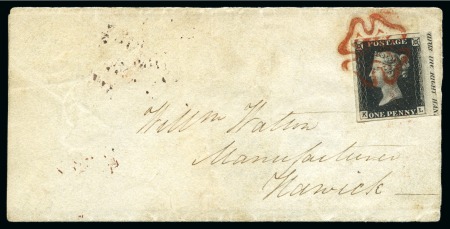 POSTAGE
ONE PENNY
Willm Watson
Manufacturer
Hawick